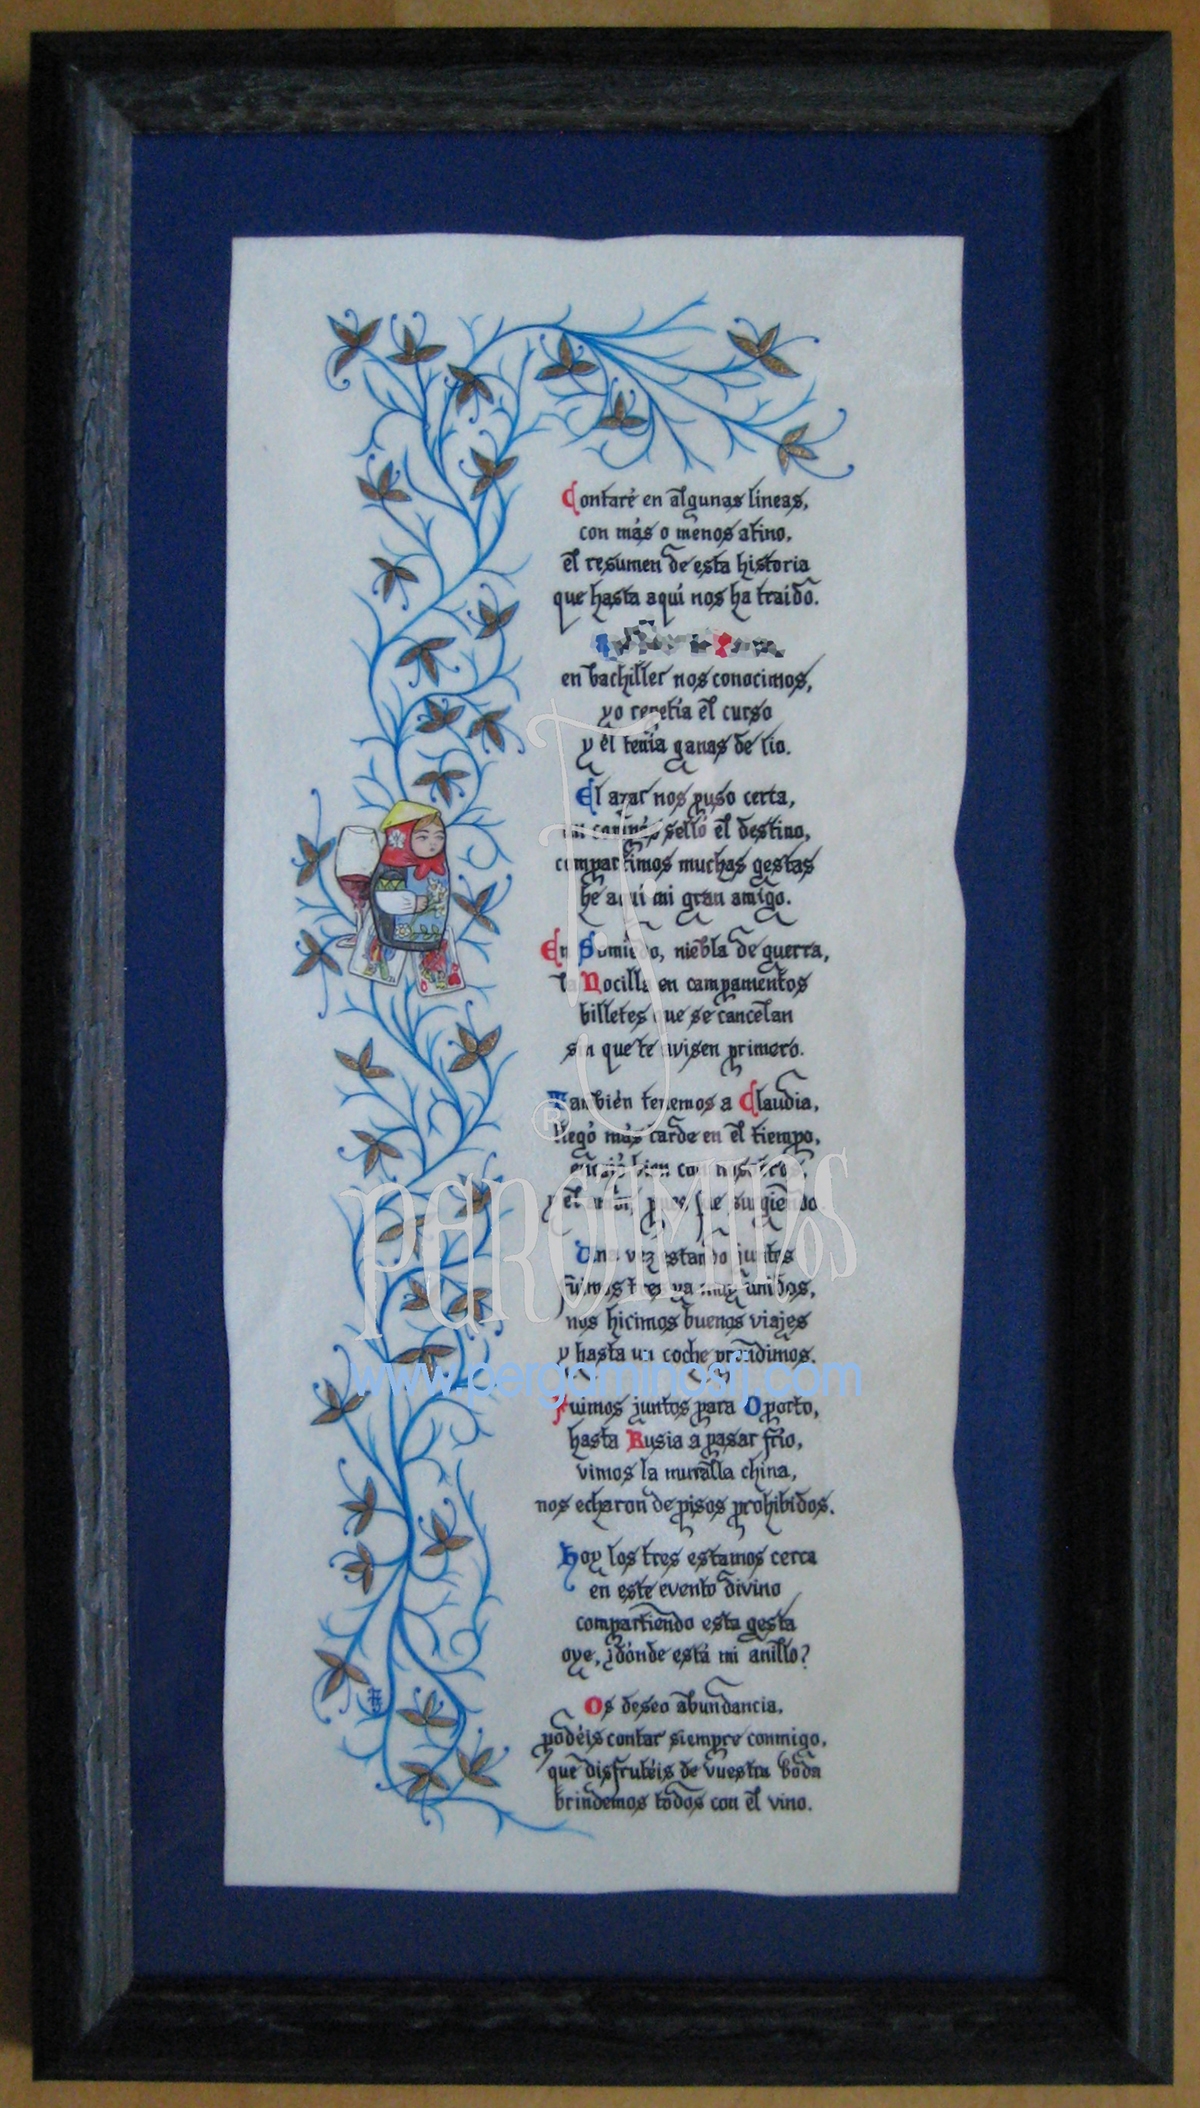 Contaré en algunas líneas,
con más o menos atino,
el resumen de esta historia
que hasta aquí nos ha traído.
en bachiller nos conocimos,
yo repetía el curso
y él tenía ganas de lío.
El azar nos puso cerca,
selló el destino,
compartimos muchas gestas
he aquí mi gran amigo.
En Somiedo, niebla de guerra,
la Nocilla en campamentos
billetes que se cancelan
sin que te avisen primero.
También tenemos a Claudia,
llegó más tarde en el tiempo,
encajó bien con nosotros,
y el amor, pues, fue surgiendo.
Una vez estando juntos
fuimos tres ya muy unidos,
nos hicimos buenos viajes
y hasta un coche prendimos.
Fuimos juntos para Oporto,
hasta Rusia a pasar frío,
vimos la muralla china,
nos echaron de pisos prohibidos.
Hoy los tres estamos cerca
en este evento divino
compartiendo esta gesta
oye, ¿dónde está mi anillo?
Os deseo abundancia,
podéis contar siempre conmigo,
que disfrutéis de vuestra boda
brindemos todos con el vino.
FJ
®
PERGAMINOS
www.pergaminosfj.com